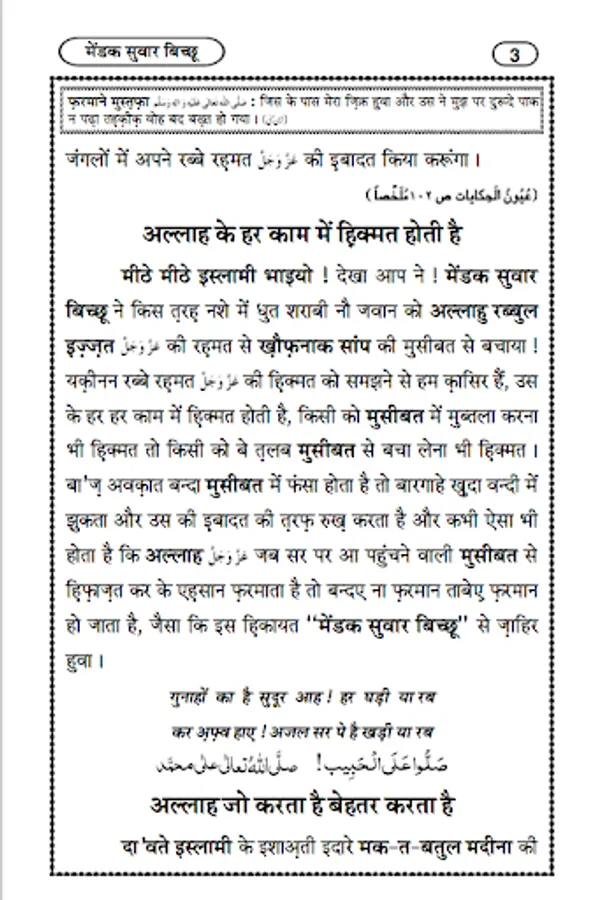 मेंडक सुवार बिच्छू
3
फ़रमाने मुस्तफ़ा صلى الله تعالى عليه واله وسلم : जिस के पास मेरा ज़िक्र हुवा और उस ने मुझ पर दुरूदे पाक
न पढ़ा तह़क़ीक़ वोह बद बख़्त हो गया ।
जंगलों में अपने रब्बे रह़मत عَزَّ وَجَلَّ की इबादत किया करूंगा ।
(عُیُونُ الْحِکایات ص ۱۰۲ مُلَخَّصاً)
अल्लाह के हर काम में ह़िक्मत होती है
मीठे मीठे इस्लामी भाइयो ! देखा आप ने ! मेंडक सुवार
बिच्छू ने किस त़रह़ नशे में धुत शराबी नौ जवान को अल्लाहु रब्बुल
इ़ज़्ज़त عَزَّ وَجَلَّ की रह़मत से ख़ौफ़नाक सांप की मुसीबत से बचाया !
यक़ीनन रब्बे रह़मत عَزَّ وَجَلَّ की ह़िक्मत को समझने से हम क़ासिर हैं, उस
के हर हर काम में ह़िक्मत होती है, किसी को मुसीबत में मुब्तला करना
भी ह़िक्मत तो किसी को बे त़लब मुसीबत से बचा लेना भी ह़िक्मत ।
बा'ज़ अवक़ात बन्दा मुसीबत में फंसा होता है तो बारगाहे ख़ुदा वन्दी में
झुकता और उस की इ़बादत की त़रफ़ रुख़ करता है और कभी ऐसा भी
होता है कि अल्लाह عَزَّ وَجَلَّ जब सर पर आ पहुंचने वाली मुसीबत से
ह़िफ़ाज़त कर के एह़सान फ़रमाता है तो बन्दए ना फ़रमान ताबेए फ़रमान
हो जाता है, जैसा कि इस ह़िकायत ‘‘मेंडक सुवार बिच्छू’’ से ज़ाहिर
हुवा ।
गुनाहों का है सुदूर आह ! हर घड़ी या रब
कर अ़फ़्व हाए ! अजल सर पे है खड़ी या रब
صَلُّوْا عَلَی الْحَبِیب ! صلَّی اللهُ تعالٰی علٰی محمَّد
अल्लाह जो करता है बेहतर करता है
दा'वते इस्लामी के इशाअ़ती इदारे मक-त-बतुल मदीना की